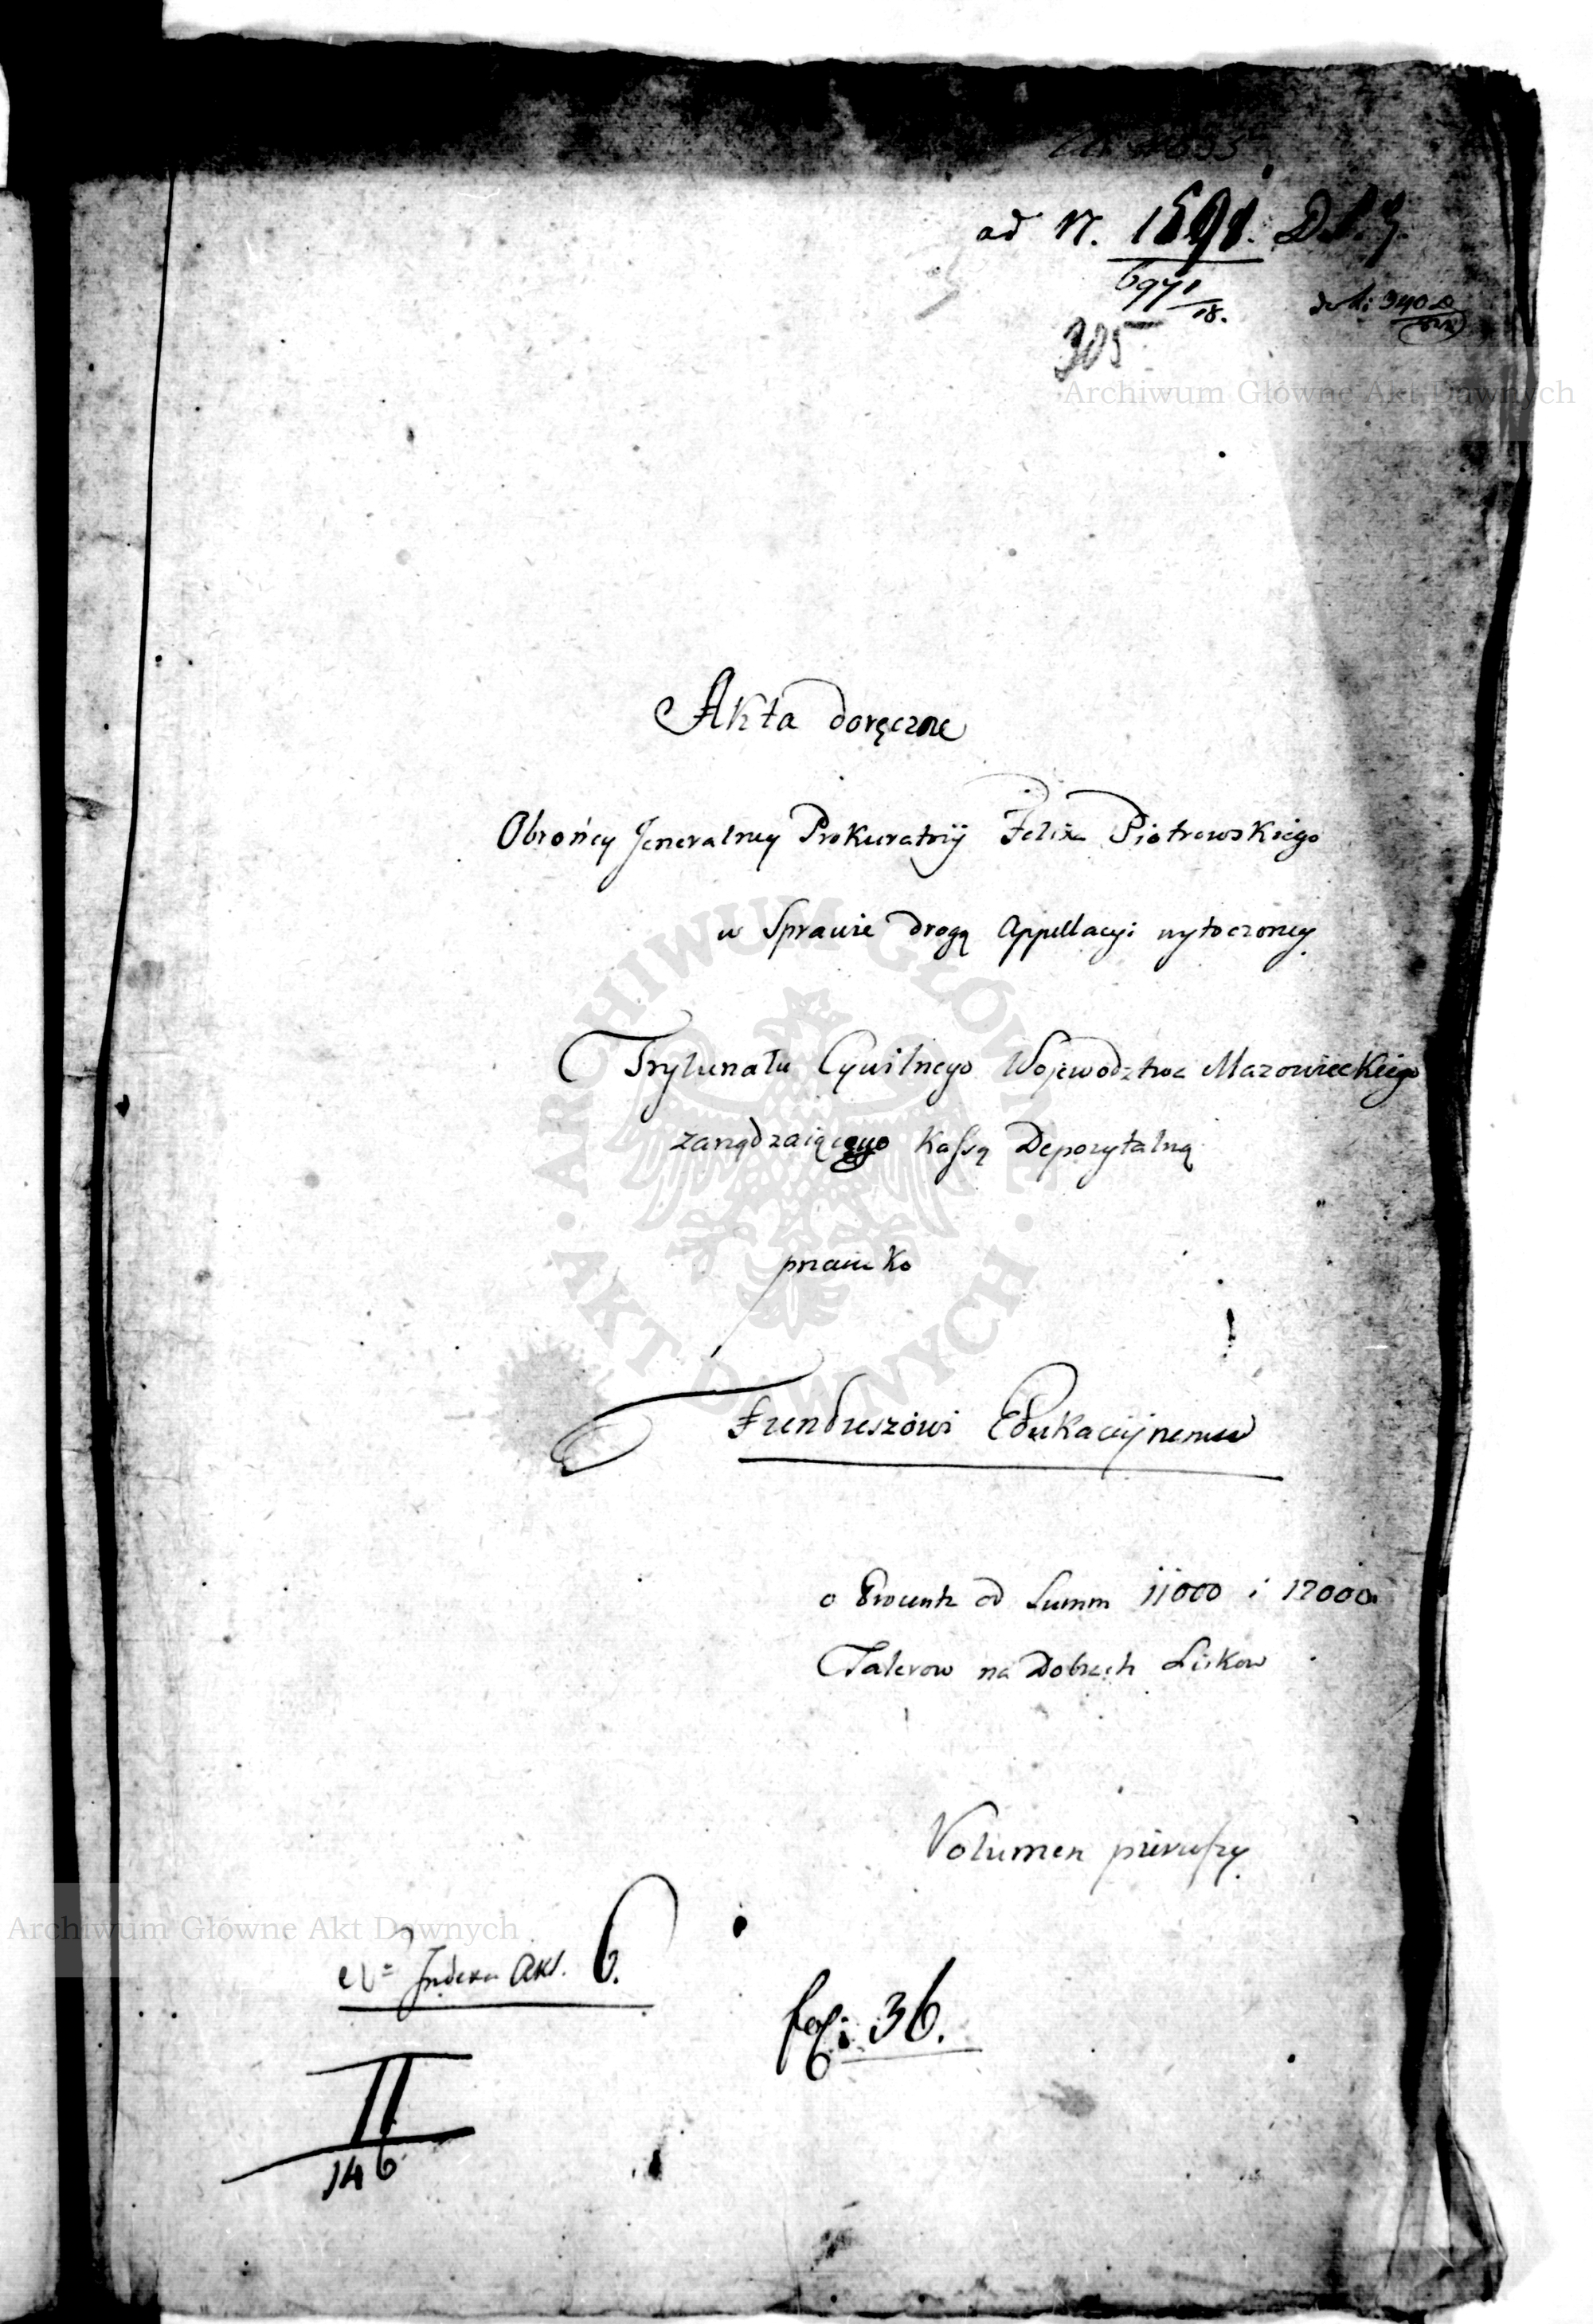 ad N. 1591. D.J.
6971/18.
305
Archiwum Główne Akt Dawnych
Akta doręczne
Obrońcy Jeneralney Prokuratoryi Felixa Piotrowskiego
w Sprawie drogą Appellacyi wytoczoney
Trybunału Cywilnego Województwa Mazowieckiego
zarządzaiącego Kassą Depozytalną
przeciwko
Funduszowi Edukacyinemu
o Procenta od Summ 11000 i 12000
Talerow na Dobrach Liskow
Volumen pierwszy
Archiwum Główne Akt Dawnych
Indexu Akt. 6.
fol: 36.
II
146
ARCHIWUM GŁÓWNE · AKT DAWNYCH ·